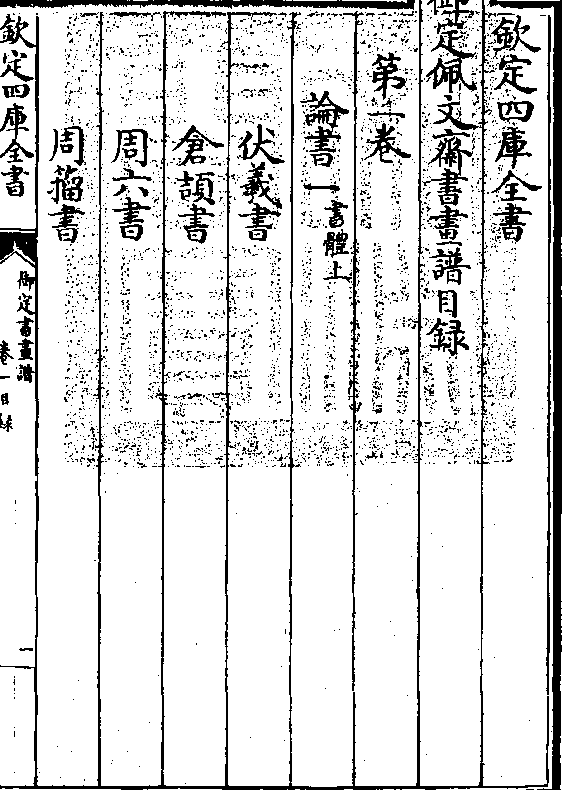 欽定四庫全書
御定佩文齋書畫譜目録
第一卷
論書一書體上
伏羲書
倉頡書
周六書
周籀書
欽定四庫全書
御定書畫譜
卷一目録
一